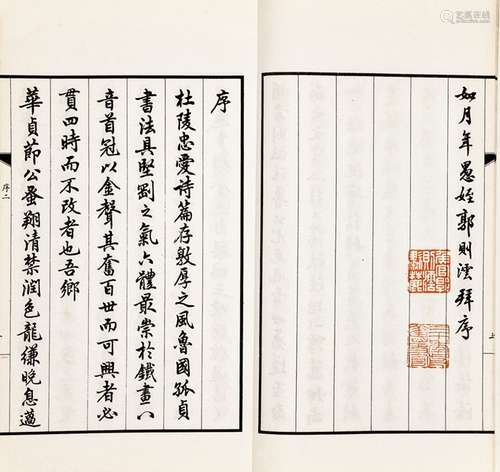 如月年愚姪郭則澐拜序
序
杜陵忠愛詩篇存敦厚之風魯國孤貞
書法具堅剛之氣六體最崇於鐵畫八
音首冠以金聲其奮百世而可興者必
貫四時而不改者也吾鄉
華貞節公蚤翔清禁潤色龍縑晚息邁
序二